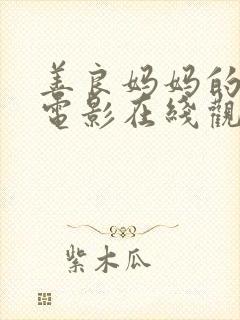 善良妈妈的
電影在綫觀
紫木瓜